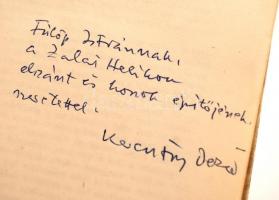 Fülöp Istvánnak,
a Zalai Helikon
elszánt és konok építőjének
szeretettel.
Keresztury Dezső